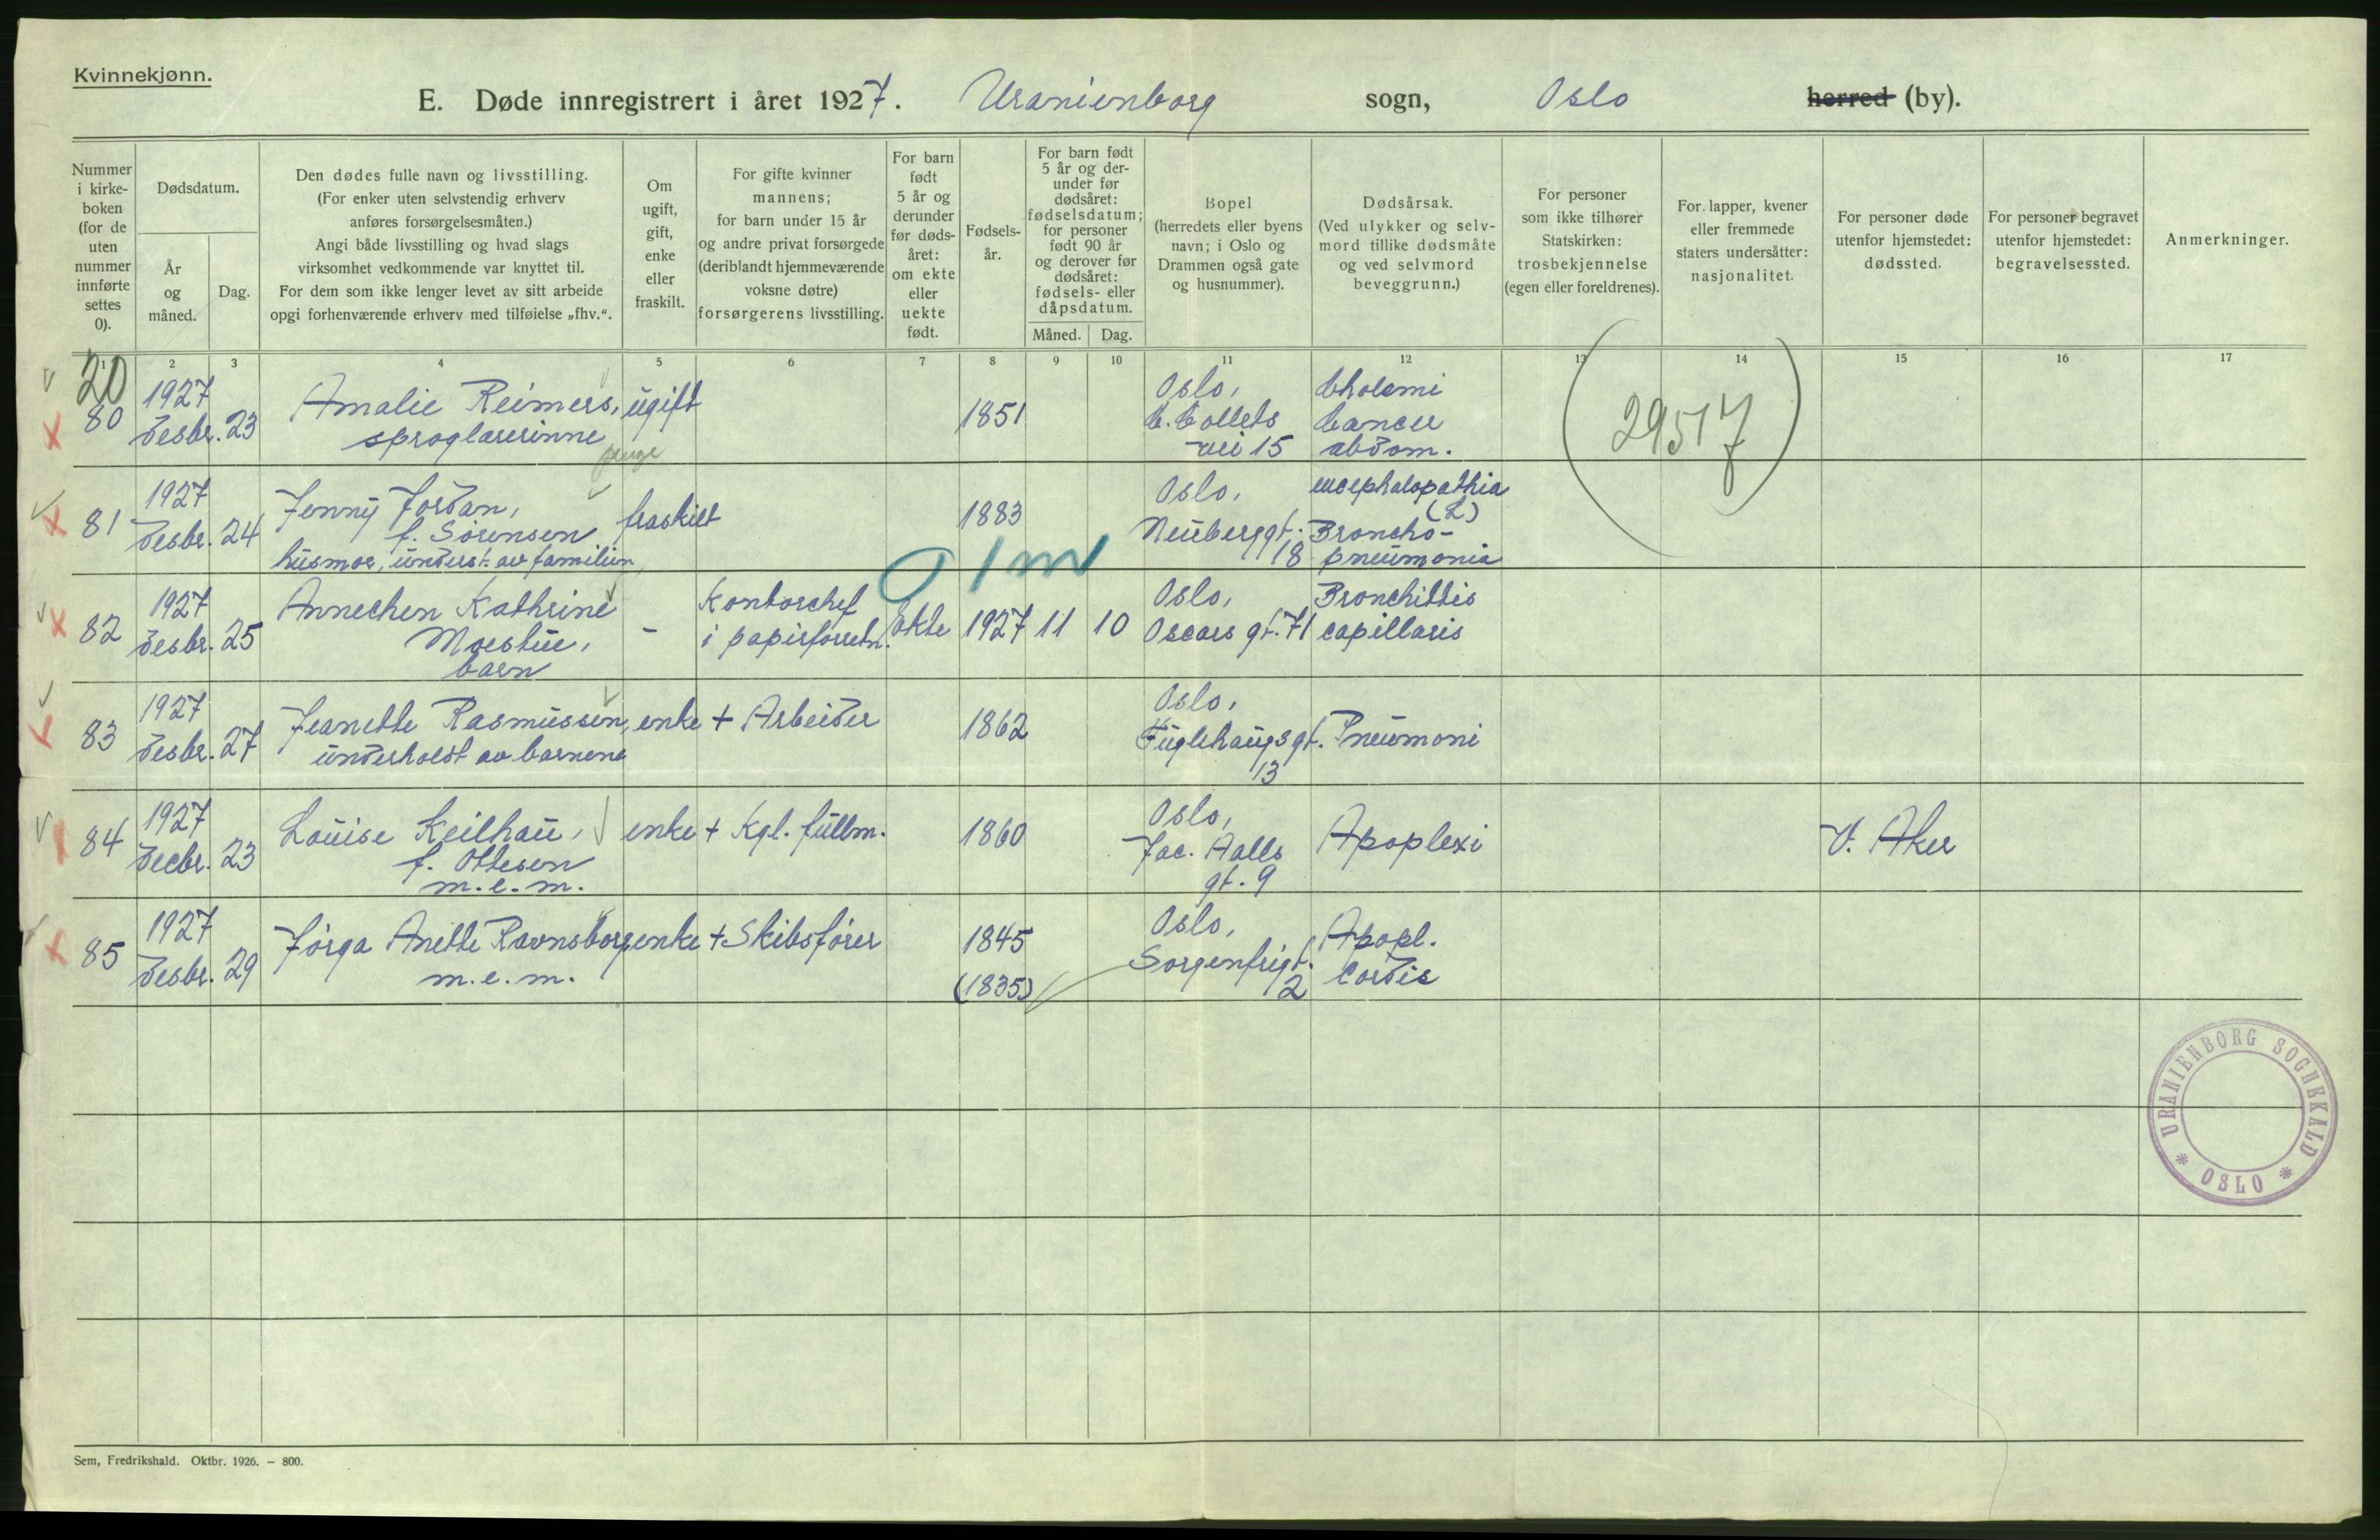 Kvinnekjønn.
E. Døde innregistrert i året 1927. Uranienborg sogn, Oslo herred (by).
Nummer
i kirke-
boken
(for de
uten
nummer
innførte
settes
0).
Dødsdatum.
År
og
måned.
Dag.
Den dødes fulle navn og livsstilling.
(For enker uten selvstendig erhverv
anføres forsørgelsesmåten.)
Angi både livsstilling og hvad slags
virksomhet vedkommende var knyttet til.
For dem som ikke lenger levet av sitt arbeide
opgi forhenværende erhverv med tilføielse „fhv.“.
Om
ugift,
gift,
enke
eller
fraskilt.
For gifte kvinner
mannens;
for barn under 15 år
og andre privat forsørgede
(deriblandt hjemmeværende
voksne døtre)
forsørgerens livsstilling.
For barn
født
5 år og
derunder
før døds-
året:
om ekte
eller
uekte
født.
Fødsels-
år.
For barn født
5 år og der-
under før
dødsåret:
fødselsdatum;
for personer
født 90 år
og derover før
dødsåret:
fødsels- eller
dåpsdatum.
Måned. Dag.
Bopel
(herredets eller byens
navn; i Oslo og
Drammen også gate
og husnummer).
Dødsårsak.
(Ved ulykker og selv-
mord tillike dødsmåte
og ved selvmord
beveggrunn.)
For personer
som ikke tilhører
Statskirken:
trosbekjennelse
(egen eller foreldrenes).
For lapper, kvener
eller fremmede
staters undersåtter:
nasjonalitet.
For personer døde
utenfor hjemstedet:
dødssted.
For personer begravet
utenfor hjemstedet:
begravelsessted.
Anmerkninger.
1 2 3 4 5 6 7 8 9 10 11 12 13 14 15 16 17
20
80
1927
Desbr. 23
Amalie Reimers,
sproglærerinne
ugift
1851
Oslo,
C. Collets
vei 15
Cholemi
Cancer
abdom.
(29517)
81
1927
Desbr. 24
Jenny Jordan,
f. Sørensen
husmor, underst. av familien
fraskilt
1883
Oslo,
Neuberggt.
18
encephalopathia
(L)
Broncho-
pneumonia
0 1 m
82
1927
Desbr. 25
Annechen Kathrine
Moestue,
barn
-
Kontorchef
i papirforretn.
Ekte
1927 11 10
Oslo,
Oscars gt. 71
Bronchittis
capillaris
83
1927
Desbr. 27
Jeanette Rasmussen,
underholdt av barnene
enke
+ Arbeider
1862
Oslo,
Fuglehaugsgt.
13
Pneumoni
84
1927
Decbr. 23
Louise Keilhau,
f. Ottesen
m.e.m.
enke
+ Kgl. fullm.
1860
Oslo,
Jac. Aalls
gt. 9
Apoplexi
V. Aker
85
1927
Desbr. 29
Jørga Anette Ravnsborg
m.e.m.
enke
+ Skibsfører
1845
(1835)
Oslo,
Sorgenfrigt.
2
Apopl.
Cordis
URANIENBORG SOGNEKALD
* OSLO *
Sem, Fredrikshald. Oktbr. 1926. — 800.